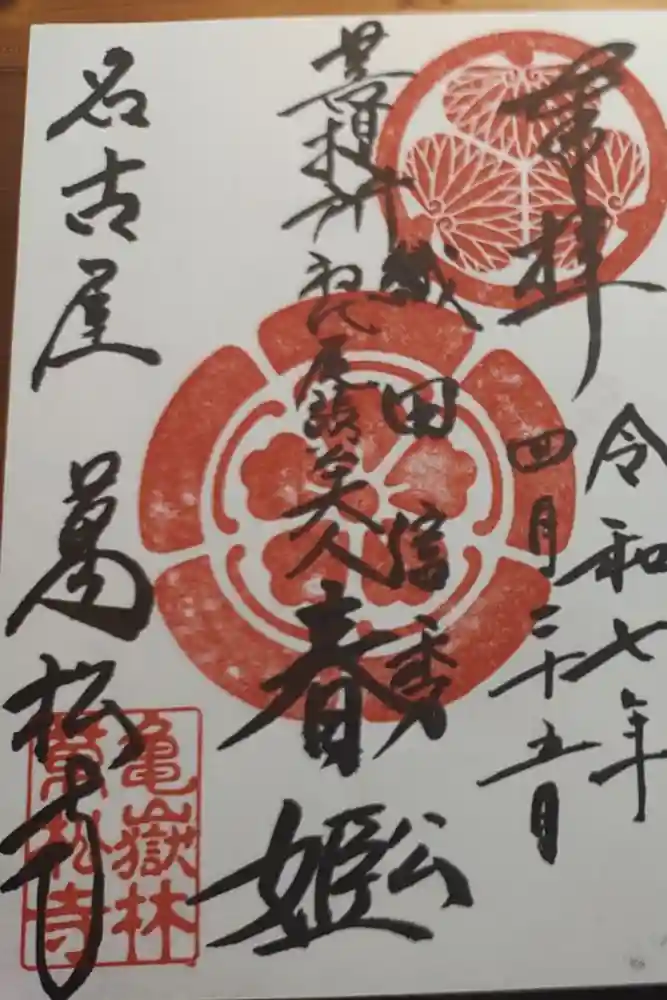 奉拝
令和七年
四月二十五日
織田信秀公
菩提所
初代尾張公夫人
春姫
名古屋 萬松寺
亀嶽林
萬松寺